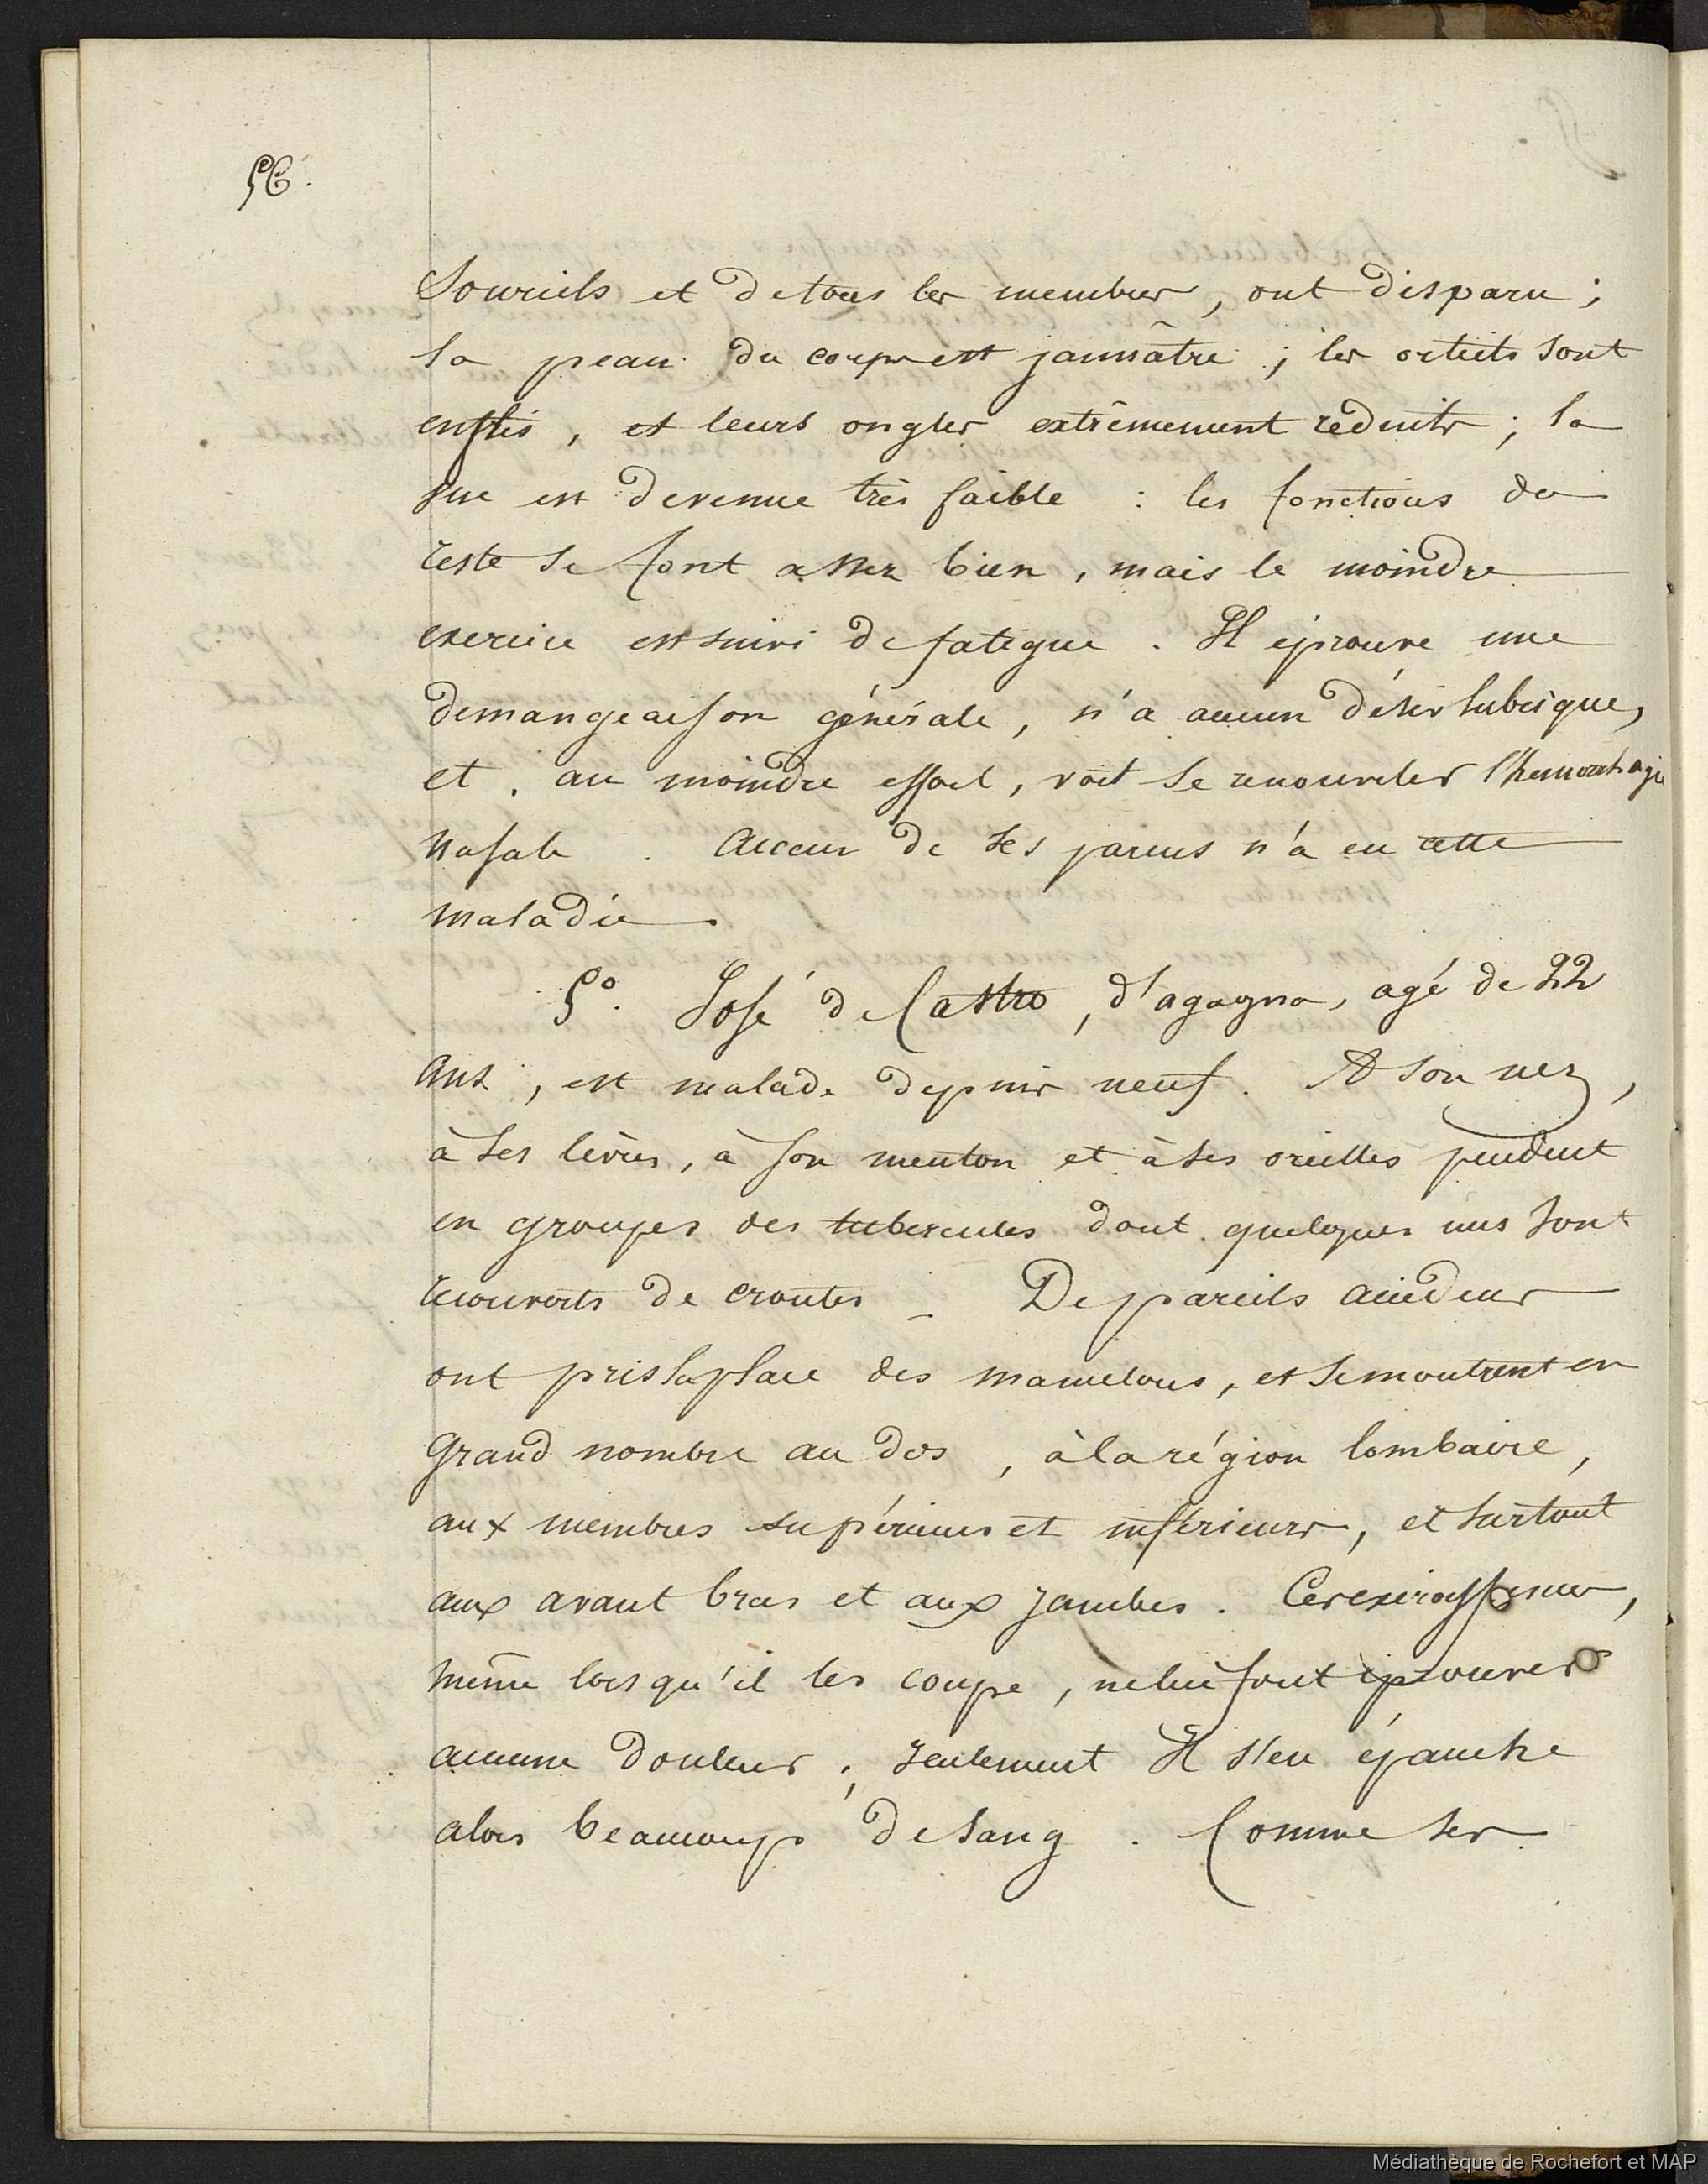 56.
Sourcils et de tous les membres, ont disparu;
la peau du corps est jaunâtre; les orteils sont
enflés, et leurs ongles extrêmement réduits; la
vue est devenue très faible : les fonctions du
reste se font assez bien, mais le moindre
exercice est suivi de fatigue. Il éprouve une
demangeaison générale, n'a aucun désir lubrique,
et, au moindre effort, voit se renouveler l'hemorrhagie
nasale. Aucun de ses parens n'a eu cette
maladie.
5º. José de Castro, d'agagna, agé de 22
ans, est malade depuis neuf. A son nez,
à ses lèvres, à son menton et à ses oreilles pendent
en groupes des tubercules dont quelques uns sont
recouverts de croutes. De pareils
ont pris la place des mamelons, et se montrent en
grand nombre au dos, à la région lombaire,
aux membres supérieurs et inférieurs, et surtout
aux avant bras et aux jambes. Ces excroissances,
même lorsqu'il les coupe, ne lui font éprouver
aucune douleur; seulement Il s'en épanche
alors beaucoup de sang. Comme ses
Médiathèque de Rochefort et MAP